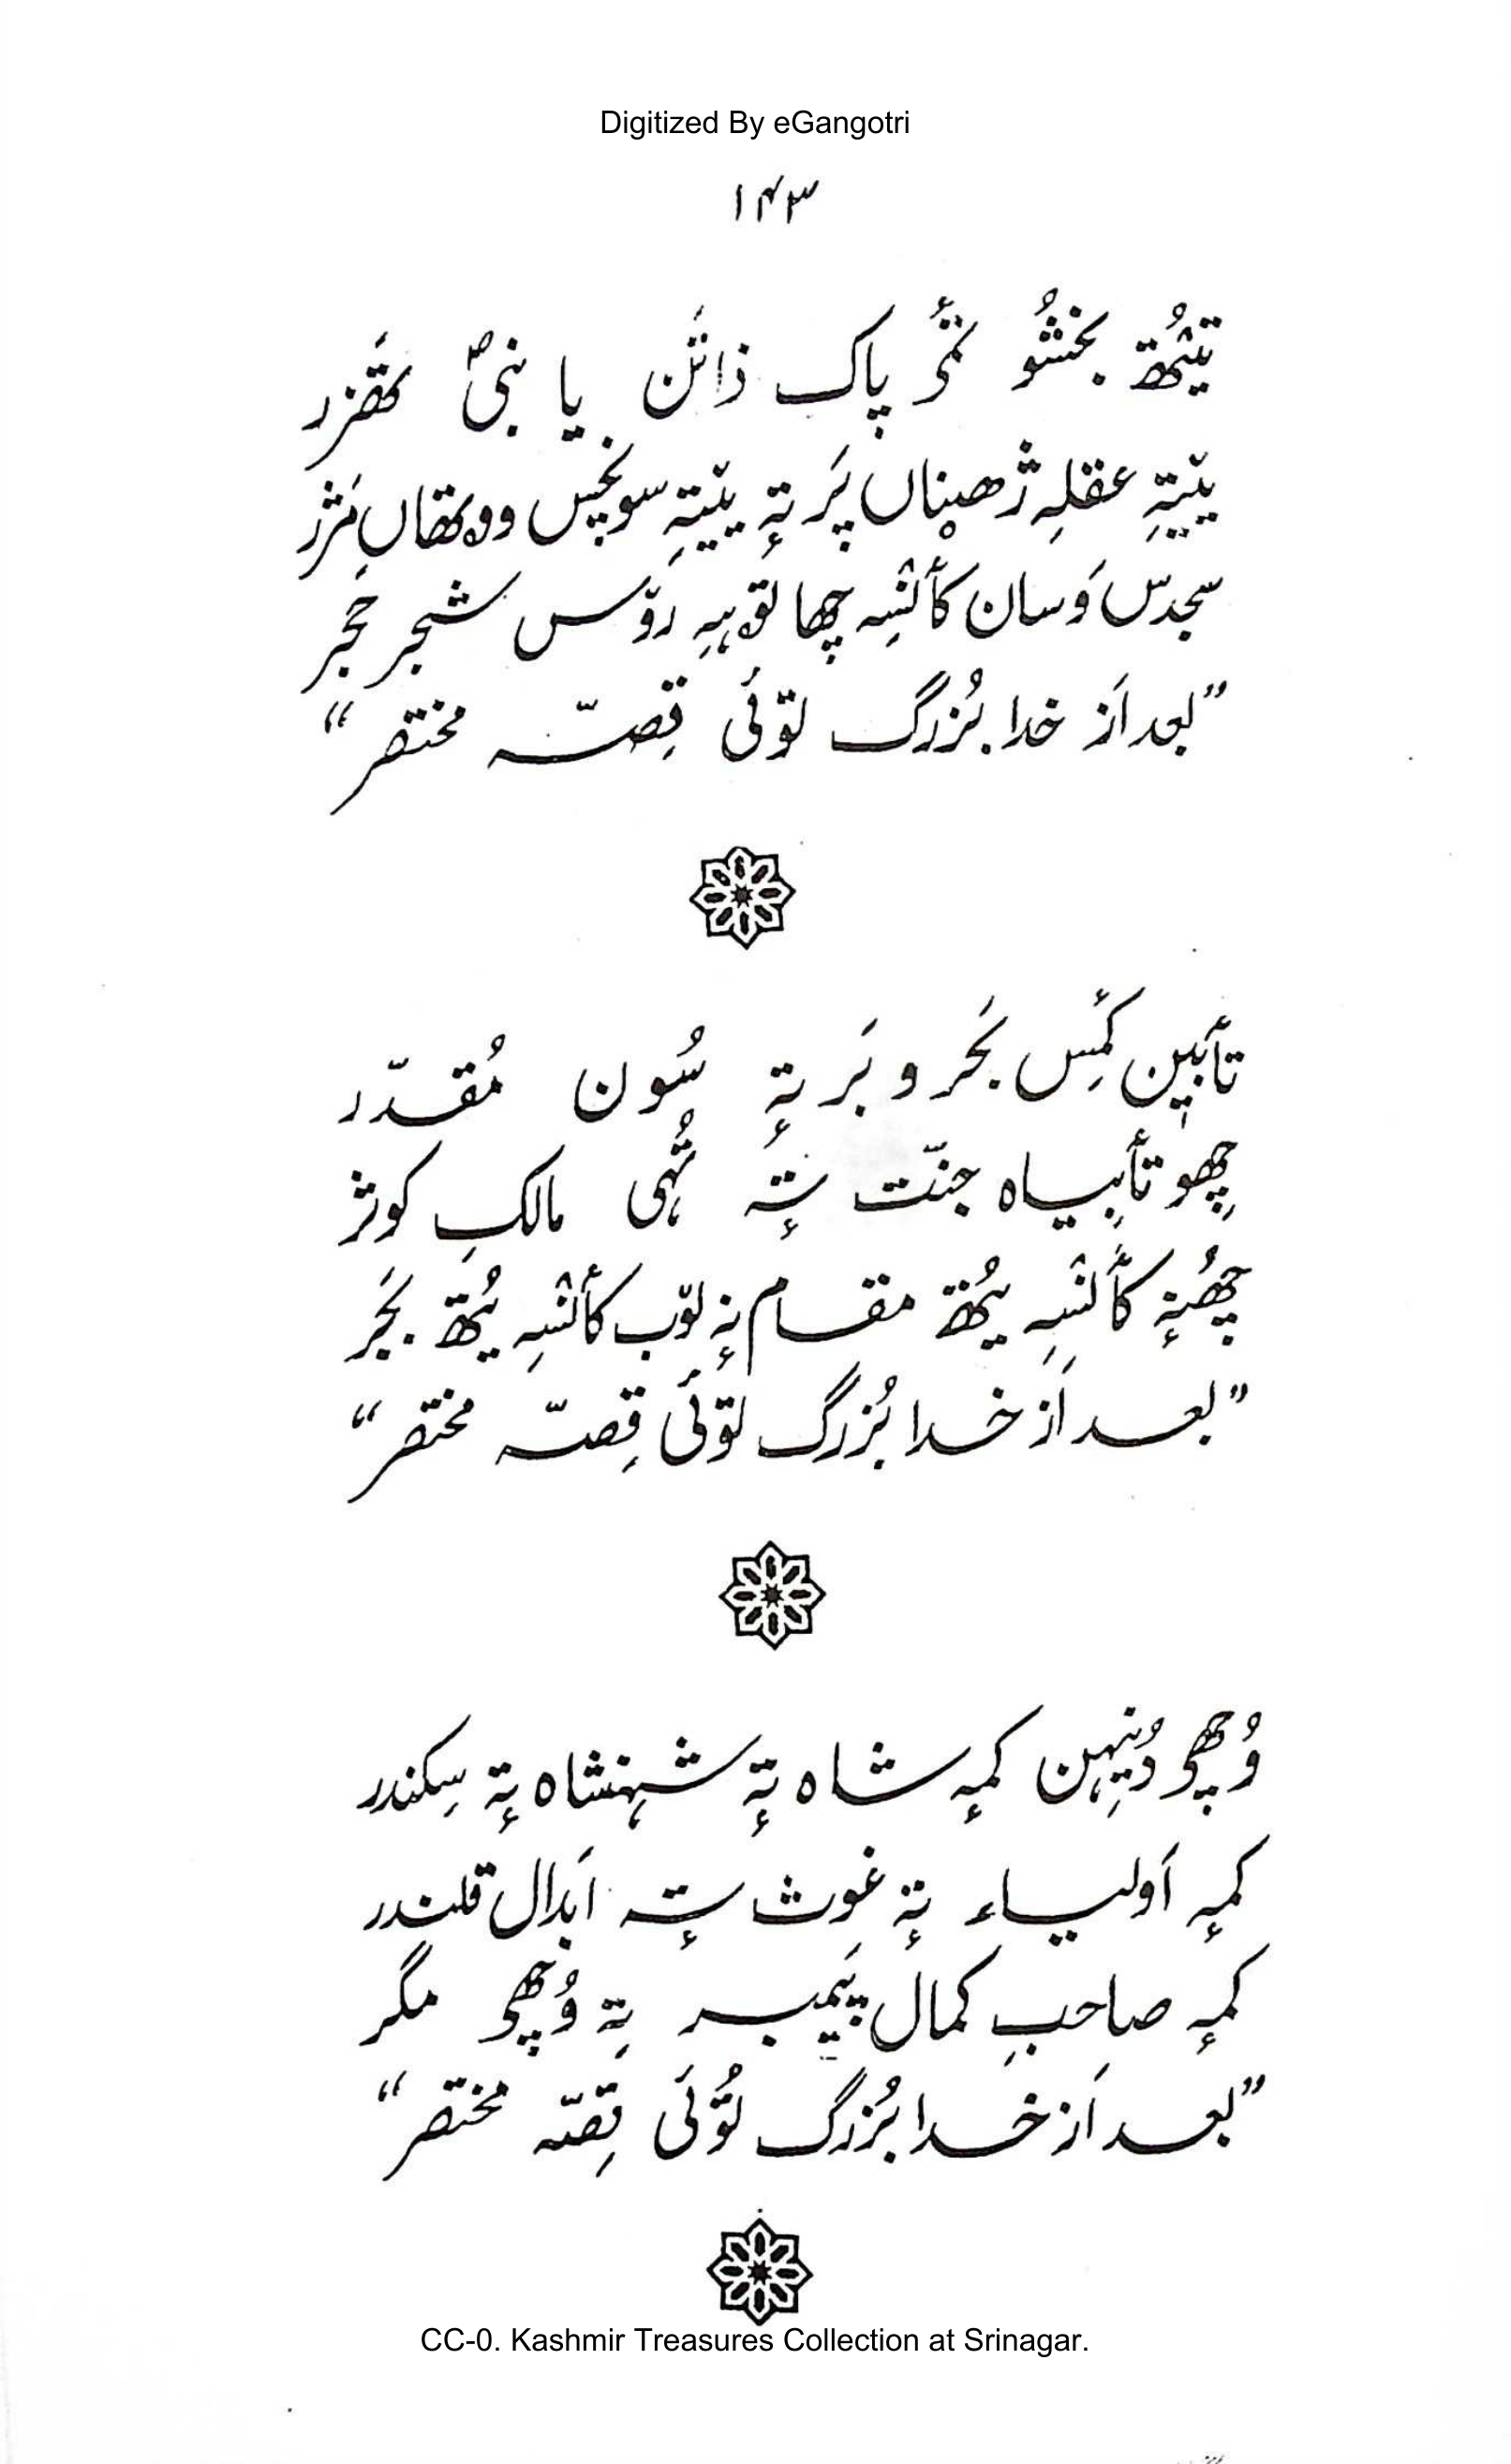 Digitized By eGangotri
۱۴۳
تیُٚتھ بخشُو تٔمۍ پاک ذاتَن یا نبیؐ تھَزر
یێتہِ عقلہِ ژھیناں پَر تہٕ یێتہِ سونچس ووتھاں مَژر
سجدس وَسان کأنٛسہِ چھا توٚہہِ روٚس شجر حَجر
”بعد اَز خدا بُزرگ توٗئی قِصّہ مختصر“
تأبین کٔمِس بَحر و بَر تہٕ سُون مُقدّر
چھِو تأبیاہ جنّت تہٕ تُہی مالکِ کوثر
چھُنہٕ کأنٛسہِ یُتھ مقام نہٕ لوٚب کأنٛسہِ یُتھ بَجَر
”بعد اَز خدا بُزرگ توٗئی قِصّہ مختصر“
وُچھۍ دُنیِہن کمہٕ شاہ تہٕ شہنشاہ تہٕ سِکندر
کمہٕ اَولیاء تہٕ غوث تہٕ اَبدال قلندر
کمہٕ صاحبِ کمال پیَمبر تہِ وُچھۍ مگر
”بعد اَز خدا بُزرگ توٗئی قِصّہ مختصر“
CC-0. Kashmir Treasures Collection at Srinagar.